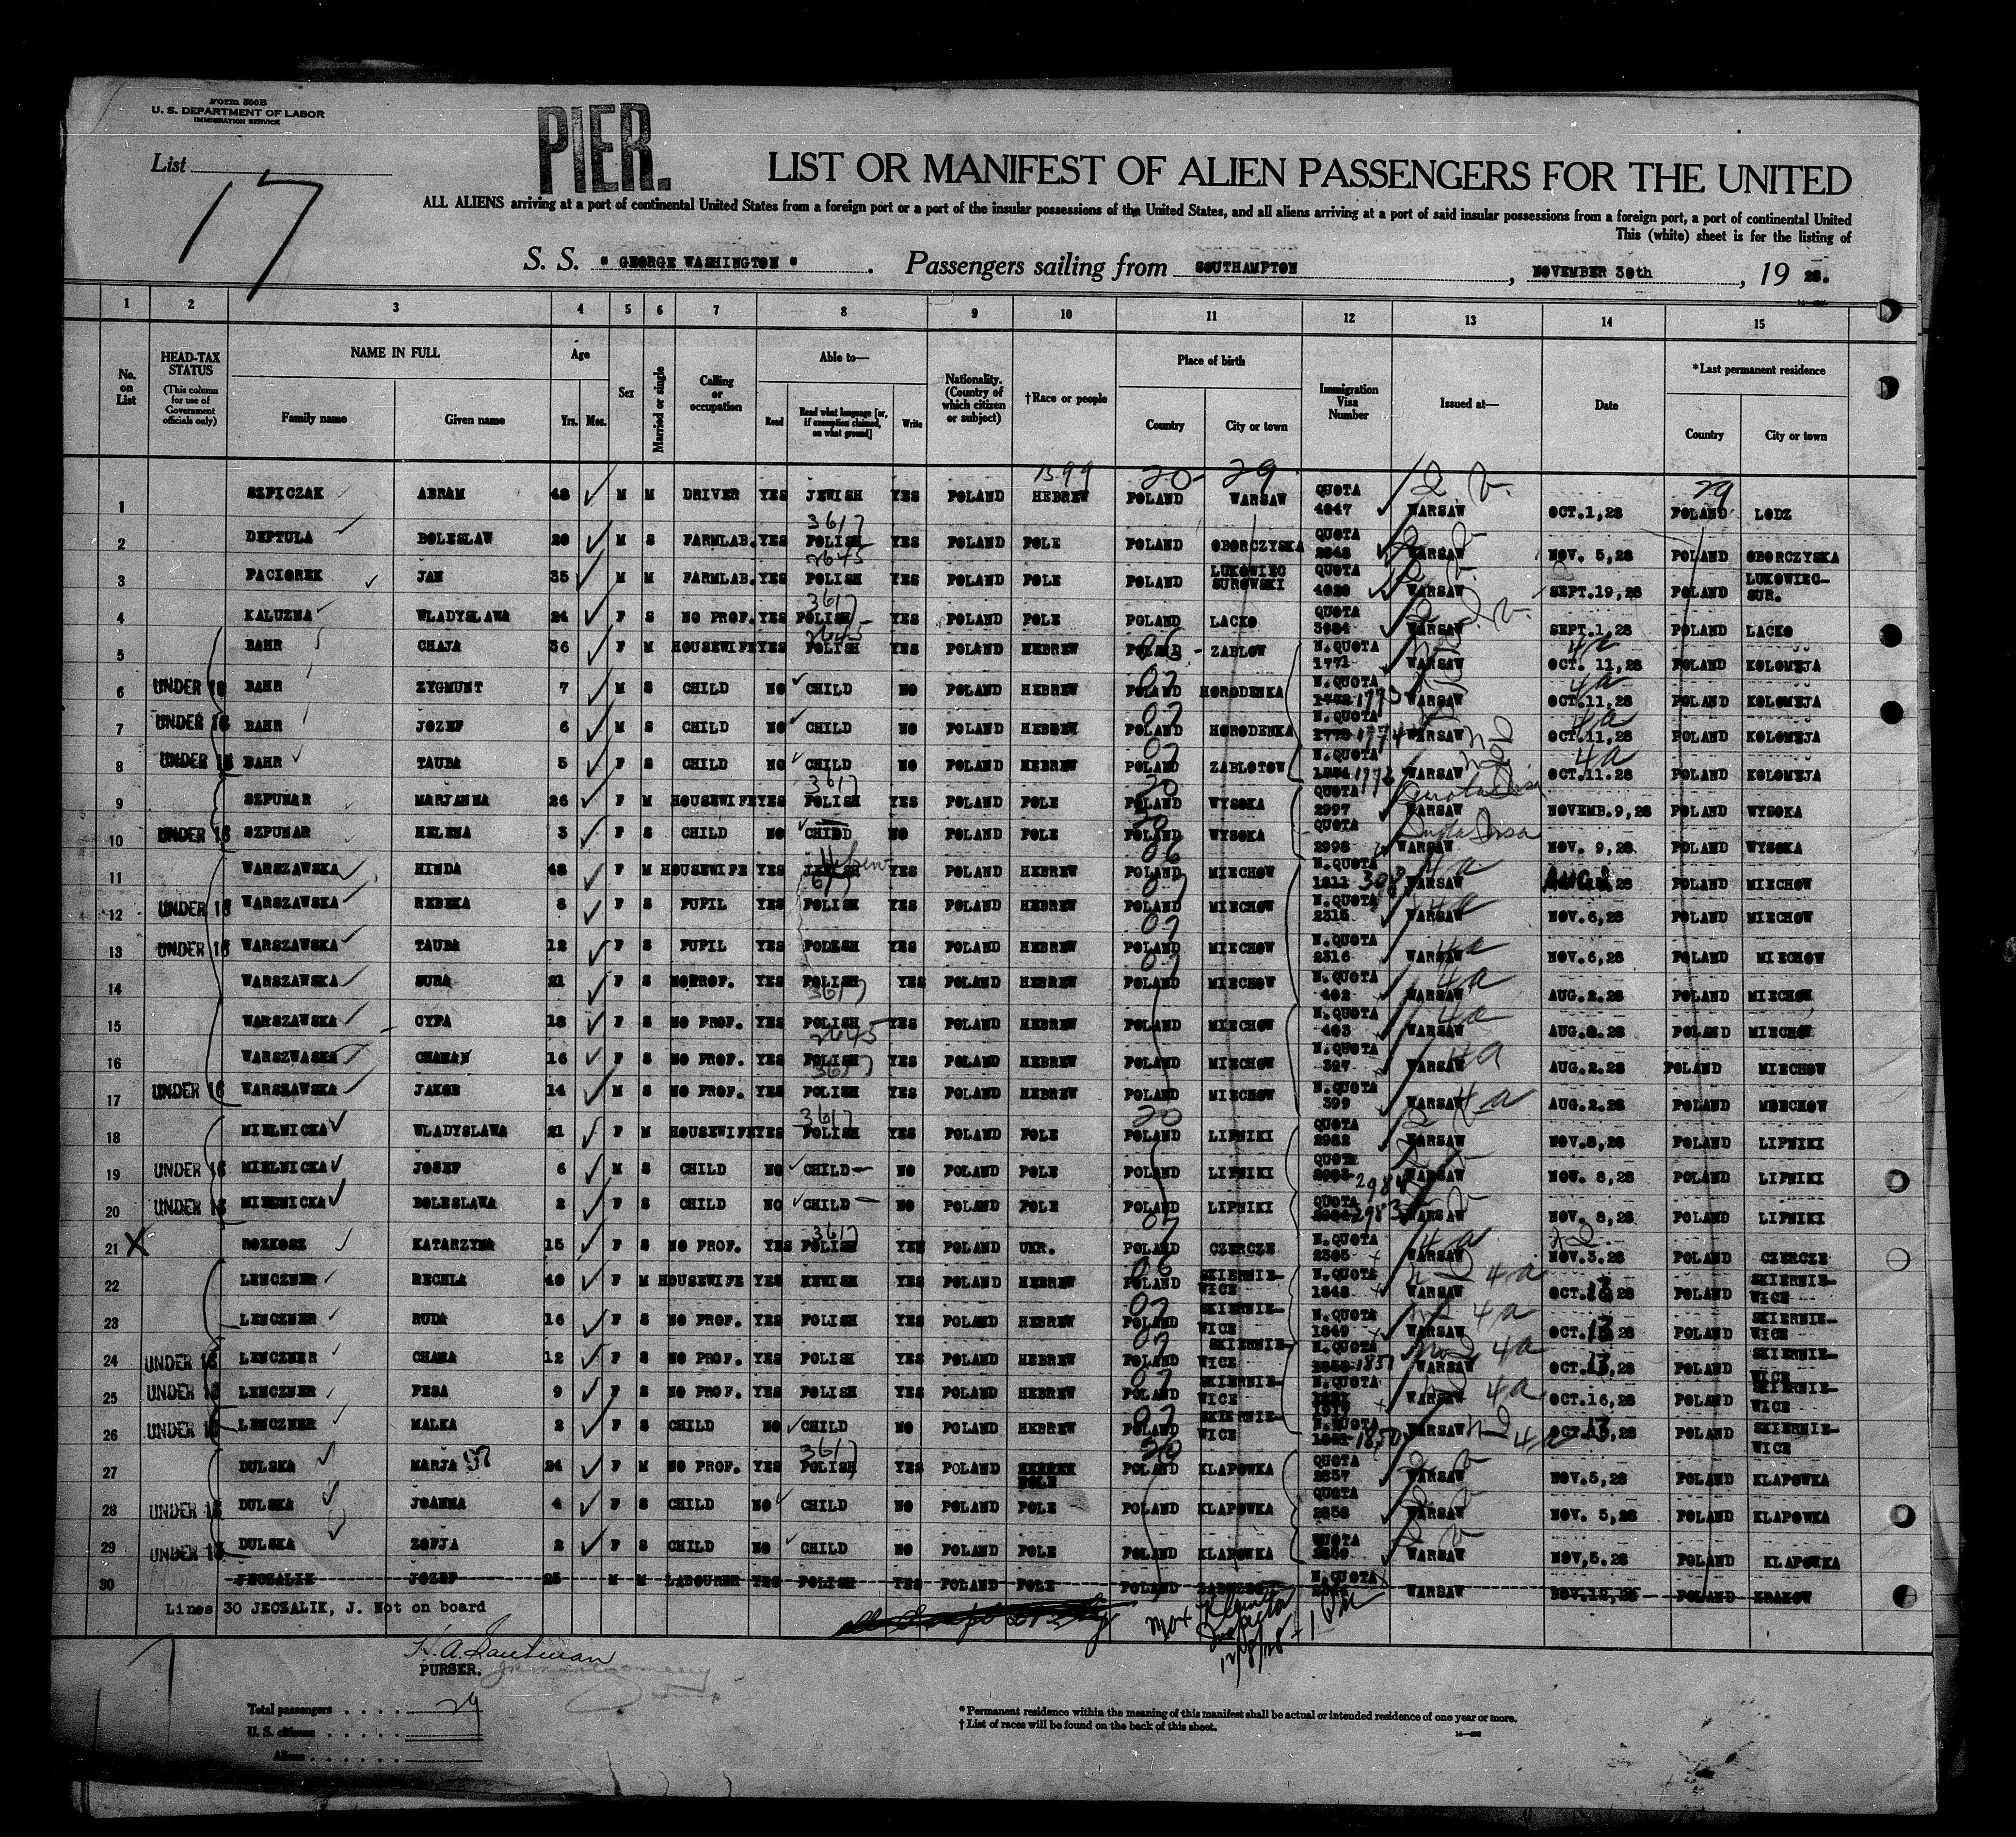 Form 500B
U. S. DEPARTMENT OF LABOR
IMMIGRATION SERVICE
PIER.
List
17
LIST OR MANIFEST OF ALIEN PASSENGERS FOR THE UNITED
ALL ALIENS arriving at a port of continental United States from a foreign port or a port of the insular possessions of the United States, and all aliens arriving at a port of said insular possessions from a foreign port, a port of continental United
This (white) sheet is for the listing of
S. S. " GEORGE WASHINGTON " . Passengers sailing from SOUTHAMPTON , NOVEMBER 30th , 19 28.
1 2 3 4 5 6 7 8 9 10 11 12 13 14 15
No. on List
HEAD-TAX STATUS (This column for use of Government officials only)
NAME IN FULL
Family name Given name
Age
Yrs. Mos.
Sex
Married or single
Calling or occupation
Able to—
Read Read what language [or, if exemption claimed, on what ground] Write
Nationality. (Country of which citizen or subject)
†Race or people
Place of birth
Country City or town
Immigration Visa Number
Issued at—
Date
*Last permanent residence
Country City or town
1399 20 29 29
1 SZPICZAK ABRAM 48 M M DRIVER YES JEWISH YES POLAND HEBREW POLAND WARSAW QUOTA 4047 WARSAW OCT.1,28 POLAND LODZ
2 DEPTULA BOLESLAW 20 M S FARMLAB. YES 3617 POLISH YES POLAND POLE POLAND OBORCZYSKA QUOTA 2848 WARSAW NOV. 5,28 POLAND OBORCZYSKA
3 PACIOREK JAN 35 M M FARMLAB. YES 2645 POLISH YES POLAND POLE POLAND LUKOWIEC SUROWSKI QUOTA 4020 WARSAW SEPT.19,28 POLAND LUKOWIEC-SUR.
4 KALUZNA WLADYSLAWA 24 F S NO PROF. YES 3617 POLISH YES POLAND POLE POLAND LACKO QUOTA 3984 WARSAW SEPT.1,28 POLAND LACKO
5 BAHR CHAJA 36 F M HOUSEWIFE YES 2645 POLISH YES POLAND HEBREW POLAND 06 ZABLOW N.QUOTA 1771 WARSAW 4a OCT. 11,28 POLAND KOLOMEJA
6 UNDER 16 BAHR ZYGMUNT 7 M S CHILD NO CHILD NO POLAND HEBREW POLAND 07 HORODENKA N.QUOTA 1773 WARSAW 4a OCT.11,28 POLAND KOLOMEJA
7 UNDER 16 BAHR JOZEF 6 M S CHILD NO CHILD NO POLAND HEBREW POLAND 07 HORODENKA N.QUOTA 1774 WARSAW 4a OCT.11,28 POLAND KOLOMEJA
8 UNDER 16 BAHR TAUBA 5 F S CHILD NO CHILD NO POLAND HEBREW POLAND 07 ZABLOTOW N.QUOTA 1772 WARSAW 4a OCT.11.28 POLAND KOLOMEJA
9 SZPUNAR MARJANNA 26 F M HOUSEWIFE YES 3617 POLISH YES POLAND POLE POLAND 20 WYSOKA QUOTA 2997 WARSAW Quota Visa NOVEMB.9,28 POLAND WYSOKA
10 UNDER 16 SZPUNAR HELENA 3 F S CHILD NO CHIDD NO POLAND POLE POLAND WYSOKA QUOTA 2998 WARSAW Quota Visa NOV. 9,28 POLAND WYSOKA
11 WARSZAWSKA HINDA 48 F M HOUSEWIFE YES JEWISH YES POLAND HEBREW POLAND 06 MIECHOW N.QUOTA 1211 308 WARSAW 4a AUG.2,28 POLAND MIECHOW
12 UNDER 16 WARSZAWSKA REBEKA 8 F S PUPIL YES POLISH YES POLAND HEBREW POLAND 07 MIECHOW N.QUOTA 2315 WARSAW 4a NOV.6,28 POLAND MIECHOW
13 UNDER 16 WARSZAWSKA TAUBA 12 F S PUPIL YES POLESH YES POLAND HEBREW POLAND 07 MIECHOW N.QUOTA 2316 WARSAW 4a NOV.6,28 POLAND MIECHOW
14 WARSZAWSKA SURA 21 F S NOPROF. YES POLISH YES POLAND HEBREW POLAND 07 MIECHOW N.QUOTA 402 WARSAW 4a AUG.2.28 POLAND MIECHOW
15 WARSZAWSKA CYPA 18 F S NO PROF. YES 3617 POLISH YES POLAND HEBREW POLAND MIECHOW N.QUOTA 403 WARSAW 4a AUG.2.28 POLAND MIECHOW
16 WARSZWASKA CHANAN 16 F S NO PROF. YES 2645 POLISH YES POLAND HEBREW POLAND MIECHOW N.QUOTA 397 WARSAW 4a AUG.2.28 POLAND MIECHOW
17 UNDER 16 WARSZAWSKA JAKOB 14 M S NO PROF. YES 3617 POLISH YES POLAND HEBREW POLAND MIECHOW N.QUOTA 399 WARSAW 4a AUG.2.28 POLAND MEECHOW
18 MIELNICKA WLADYSLAWA 21 F M HOUSEWIFE YES 3617 POLISH YES POLAND POLE POLAND 20 LIPNIKI QUOTA 2982 WARSAW NOV.8,28 POLAND LIPNIKI
19 UNDER 16 MIELNICKA JOSEF 6 M S CHILD NO CHILD NO POLAND POLE POLAND LIPNIKI QUOTA 2984 WARSAW NOV. 8,28 POLAND LIPNIKI
20 UNDER 16 MIELNICKA BOLESLAWA 2 F S CHILD NO CHILD NO POLAND POLE POLAND LIPNIKI QUOTA 2983 WARSAW NOV. 8,28 POLAND LIPNIKI
21 X ROZKOSZ KATARZYNA 15 F S NO PROF. YES 3617 POLISH YES POLAND UKR. POLAND 07 CZERCZE N.QUOTA 2305 WARSAW 4a NOV.3.28 POLAND CZERCZE
22 LENCZNER RECHLA 40 F M HOUSEWIFE YES HEWISH YES POLAND HEBREW POLAND 06 SKIERNIE-WICE N.QUOTA 1848 WARSAW 4a OCT.13,28 POLAND SKIERNIE-WICE
23 LENCZNER RUDA 16 F S NO PROF. YES POLISH YES POLAND HEBREW POLAND 07 SKIERNIE-WICE N.QUOTA 1849 WARSAW 4a OCT.13,28 POLAND SKIERNIE-WICE
24 UNDER 16 LENCZNER CHANA 12 F S NO PROF. YES POLISH YES POLAND HEBREW POLAND 07 SKIERNIE-WICE N.QUOTA 1850 1851 WARSAW 4a OCT.13,28 POLAND SKIERNIE-WICE
25 UNDER 16 LENCZNER PESA 9 F S NO PROF. YES POLISH YES POLAND HEBREW POLAND 07 SKIERNIE-WICE N.QUOTA WARSAW 4a OCT.16,28 POLAND SKIERNIE-WICE
26 UNDER 16 LENCZNER MALKA 2 F S CHILD NO CHILD NO POLAND HEBREW POLAND 07 SKIERNIE-WICE N.QUOTA 1850 WARSAW 4a OCT.13,28 POLAND SKIERNIE-WICE
27 DULSKA MARJA 24 F M NO PROF. YES 3617 POLISH YES POLAND HEBREW POLE POLAND 20 KLAPOWKA QUOTA 2857 WARSAW NOV.5,28 POLAND KLAPOWKA
28 UNDER 16 DULSKA JOANNA 4 F S CHILD NO CHILD NO POLAND POLE POLAND KLAPOWKA QUOTA 2858 WARSAW NOV. 5,28 POLAND KLAPOWKA
29 UNDER 16 DULSKA ZOFJA 2 F S CHILD NO CHILD NO POLAND POLE POLAND KLAPOWKA QUOTA 2859 WARSAW NOV,5.28 POLAND KLAPOWKA
30 JECZALIK JOZEF 25 M M LABOURER YES POLISH YES POLAND POLE POLAND N.QUOTA WARSAW NOV.12,28 POLAND KRAKOW
Lines 30 JECZALIK, J. Not on board
Inspector
12/8/28 - 1 PM
PURSER.
Total passengers . . . . 29
U. S. citizens . . . .
Aliens . . . . . .
* Permanent residence within the meaning of this manifest shall be actual or intended residence of one year or more.
† List of races will be found on the back of this sheet.